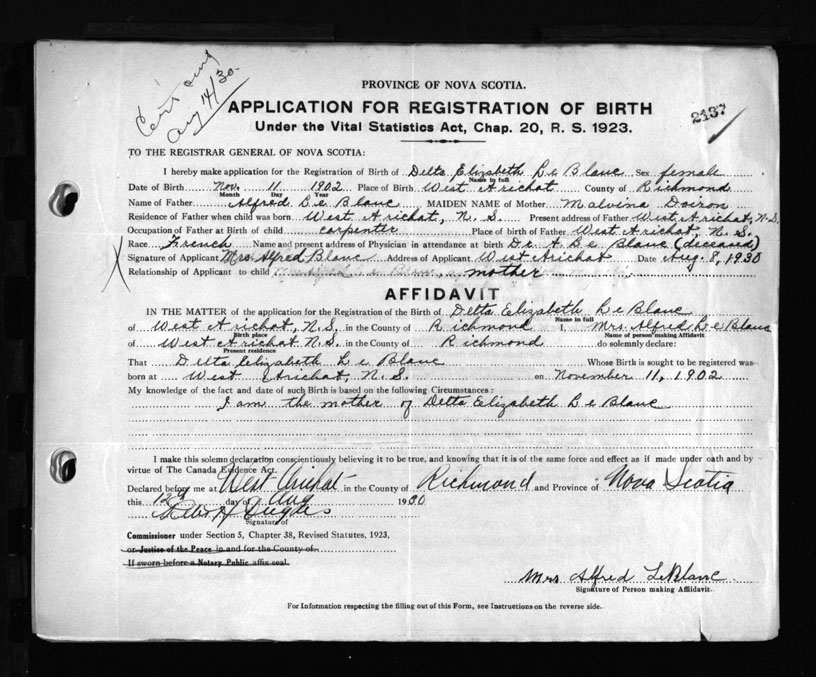 Cert sent
Aug 14/30.
PROVINCE OF NOVA SCOTIA.
APPLICATION FOR REGISTRATION OF BIRTH
2137
Under the Vital Statistics Act, Chap. 20, R. S. 1923.
TO THE REGISTRAR GENERAL OF NOVA SCOTIA:
I hereby make application for the Registration of Birth of Delta Elizabeth Le Blanc Sex female
Name in full
Date of Birth Nov. 11 1902 Place of Birth West Arichat County of Richmond
Month Day Year
Name of Father Alfred Le Blanc MAIDEN NAME of Mother Malvina Doiron
Residence of Father when child was born West Arichat, N. S. Present address of Father West Arichat, N. S.
Occupation of Father at Birth of child carpenter Place of birth of Father West Arichat, N. S.
Race French Name and present address of Physician in attendance at birth Dr. A. Le Blanc (deceased)
Signature of Applicant Mrs Alfred Blanc Address of Applicant West Arichat Date Aug. 8, 1930
Relationship of Applicant to child mother
AFFIDAVIT
IN THE MATTER of the application for the Registration of the Birth of Delta Elizabeth Le Blanc
Name in full
of West Arichat, N.S. in the County of Richmond I, Mrs. Alfred Le Blanc
Birth place Name of person making Affidavit
of West Arichat N.S. in the County of Richmond do solemnly declare:
Present residence
That Delta Elizabeth Le Blanc Whose Birth is sought to be registered was
born at West Arichat, N. S. on November 11, 1902
My knowledge of the fact and date of such Birth is based on the following Circumstances:
I am the mother of Delta Elizabeth Le Blanc
I make this solemn declaration conscientiously believing it to be true, and knowing that it is of the same force and effect as if made under oath and by
virtue of The Canada Evidence Act.
Declared before me at West Arichat in the County of Richmond and Province of Nova Scotia
this 12th day of Aug 1930
Signature of
Commissioner under Section 5, Chapter 38, Revised Statutes, 1923,
or Justice of the Peace in and for the County of
If sworn before a Notary Public affix seal.
Mrs Alfred LeBlanc
Signature of Person making Affidavit.
For Information respecting the filling out of this Form, see Instructions on the reverse side.